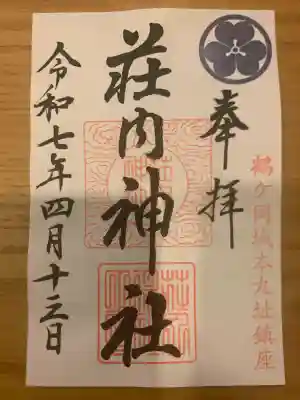 奉拝
鶴ヶ岡城本丸址鎮座
荘内神社
令和七年四月十三日